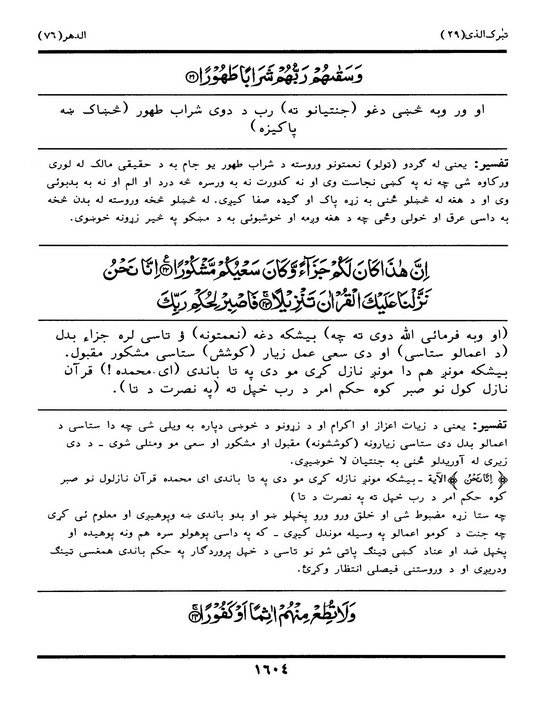 تبٰرک الذي(٢٩) الدهر(٧٦)
وَسَقٰىهُمْ رَبُّهُمْ شَرَابًا طَهُوْرًا ﴿٢١﴾
او ور وبه څښي دغو (جنتيانو ته) رب د دوی شراب طهور (څښاک ښه
پاکيزه)
تفسير: يعنی له گردو (ټولو) نعمتونو وروسته د شراب طهور يو جام به د حقيقي مالک له لوري
ورکاوه شي چه نه په کښي نجاست وي او نه کدورت نه به ورسره څه درد او الم او نه به بدبوئي
وي او د هغه له څښلو ځنې به زړه پاک او گيډه صفا کيږي. له څښلو څخه وروسته له بدن څخه
به داسي عرق او خولي وځي چه د هغه وږمه او خوشبوئي به د مښکو په څير زړونه خوښوي.
اِنَّ هٰذَا كَانَ لَكُمْ جَزَآءً وَّكَانَ سَعْيُكُمْ مَّشْكُوْرًا ﴿٢٢﴾ اِنَّا نَحْنُ
نَزَّلْنَا عَلَيْكَ الْقُرْاٰنَ تَنْزِيْلًا ﴿٢٣﴾ فَاصْبِرْ لِحُكْمِ رَبِّكَ
(او وبه فرمائي الله دوی ته چه) بيشکه دغه (نعمتونه) ؤ تاسي لره جزاء بدل
(د اعمالو ستاسي) او دی سعي عمل زيار (کوشش) ستاسي مشکور مقبول.
بيشکه مونږ هم دا مونږ نازل کړی مو دی په تا باندي (ای محمده!) قرآن
نازل کول نو صبر کوه حکم امر د رب خپل ته (په نصرت د تا).
تفسير: يعنی د زيات اعزاز او اکرام او د زړونو د خوښي دپاره به ويلی شي چه دا ستاسي د
اعمالو بدل دی ستاسي زيارونه (کوششونه) مقبول او مشکور او سعي مو ومنلی شوی ـ د دی
زيري له آوريدلو ځنې به جنتيان لا خوښيږي.
﴿ اِنَّا نَحْنُ ﴾ الآية ـ بيشکه مونږ نازله کړی مو دی په تا باندي ای محمده قرآن نازلول نو صبر
کوه حکم امر د رب خپل ته په نصرت د تا)
چه ستا زړه مضبوط شي او خلق ورو ورو پخپلو ښو او بدو باندي ښه وپوهيږي او معلوم ئی کړي
چه جنت د کومو اعمالو په وسيله موندل کيږي ـ که په داسي پوهولو سره هم ونه پوهيده او
پخپل ضد او عناد کښي ټينگ پاتي شو نو تاسي د خپل پروردگار په حکم باندي همغسي ټينگ
ودريږی او د وروستني فيصلي انتظار وکړئ.
وَلَا تُطِعْ مِنْهُمْ اٰثِمًا اَوْ كَفُوْرًا ﴿٢٤﴾
١٦٠٤